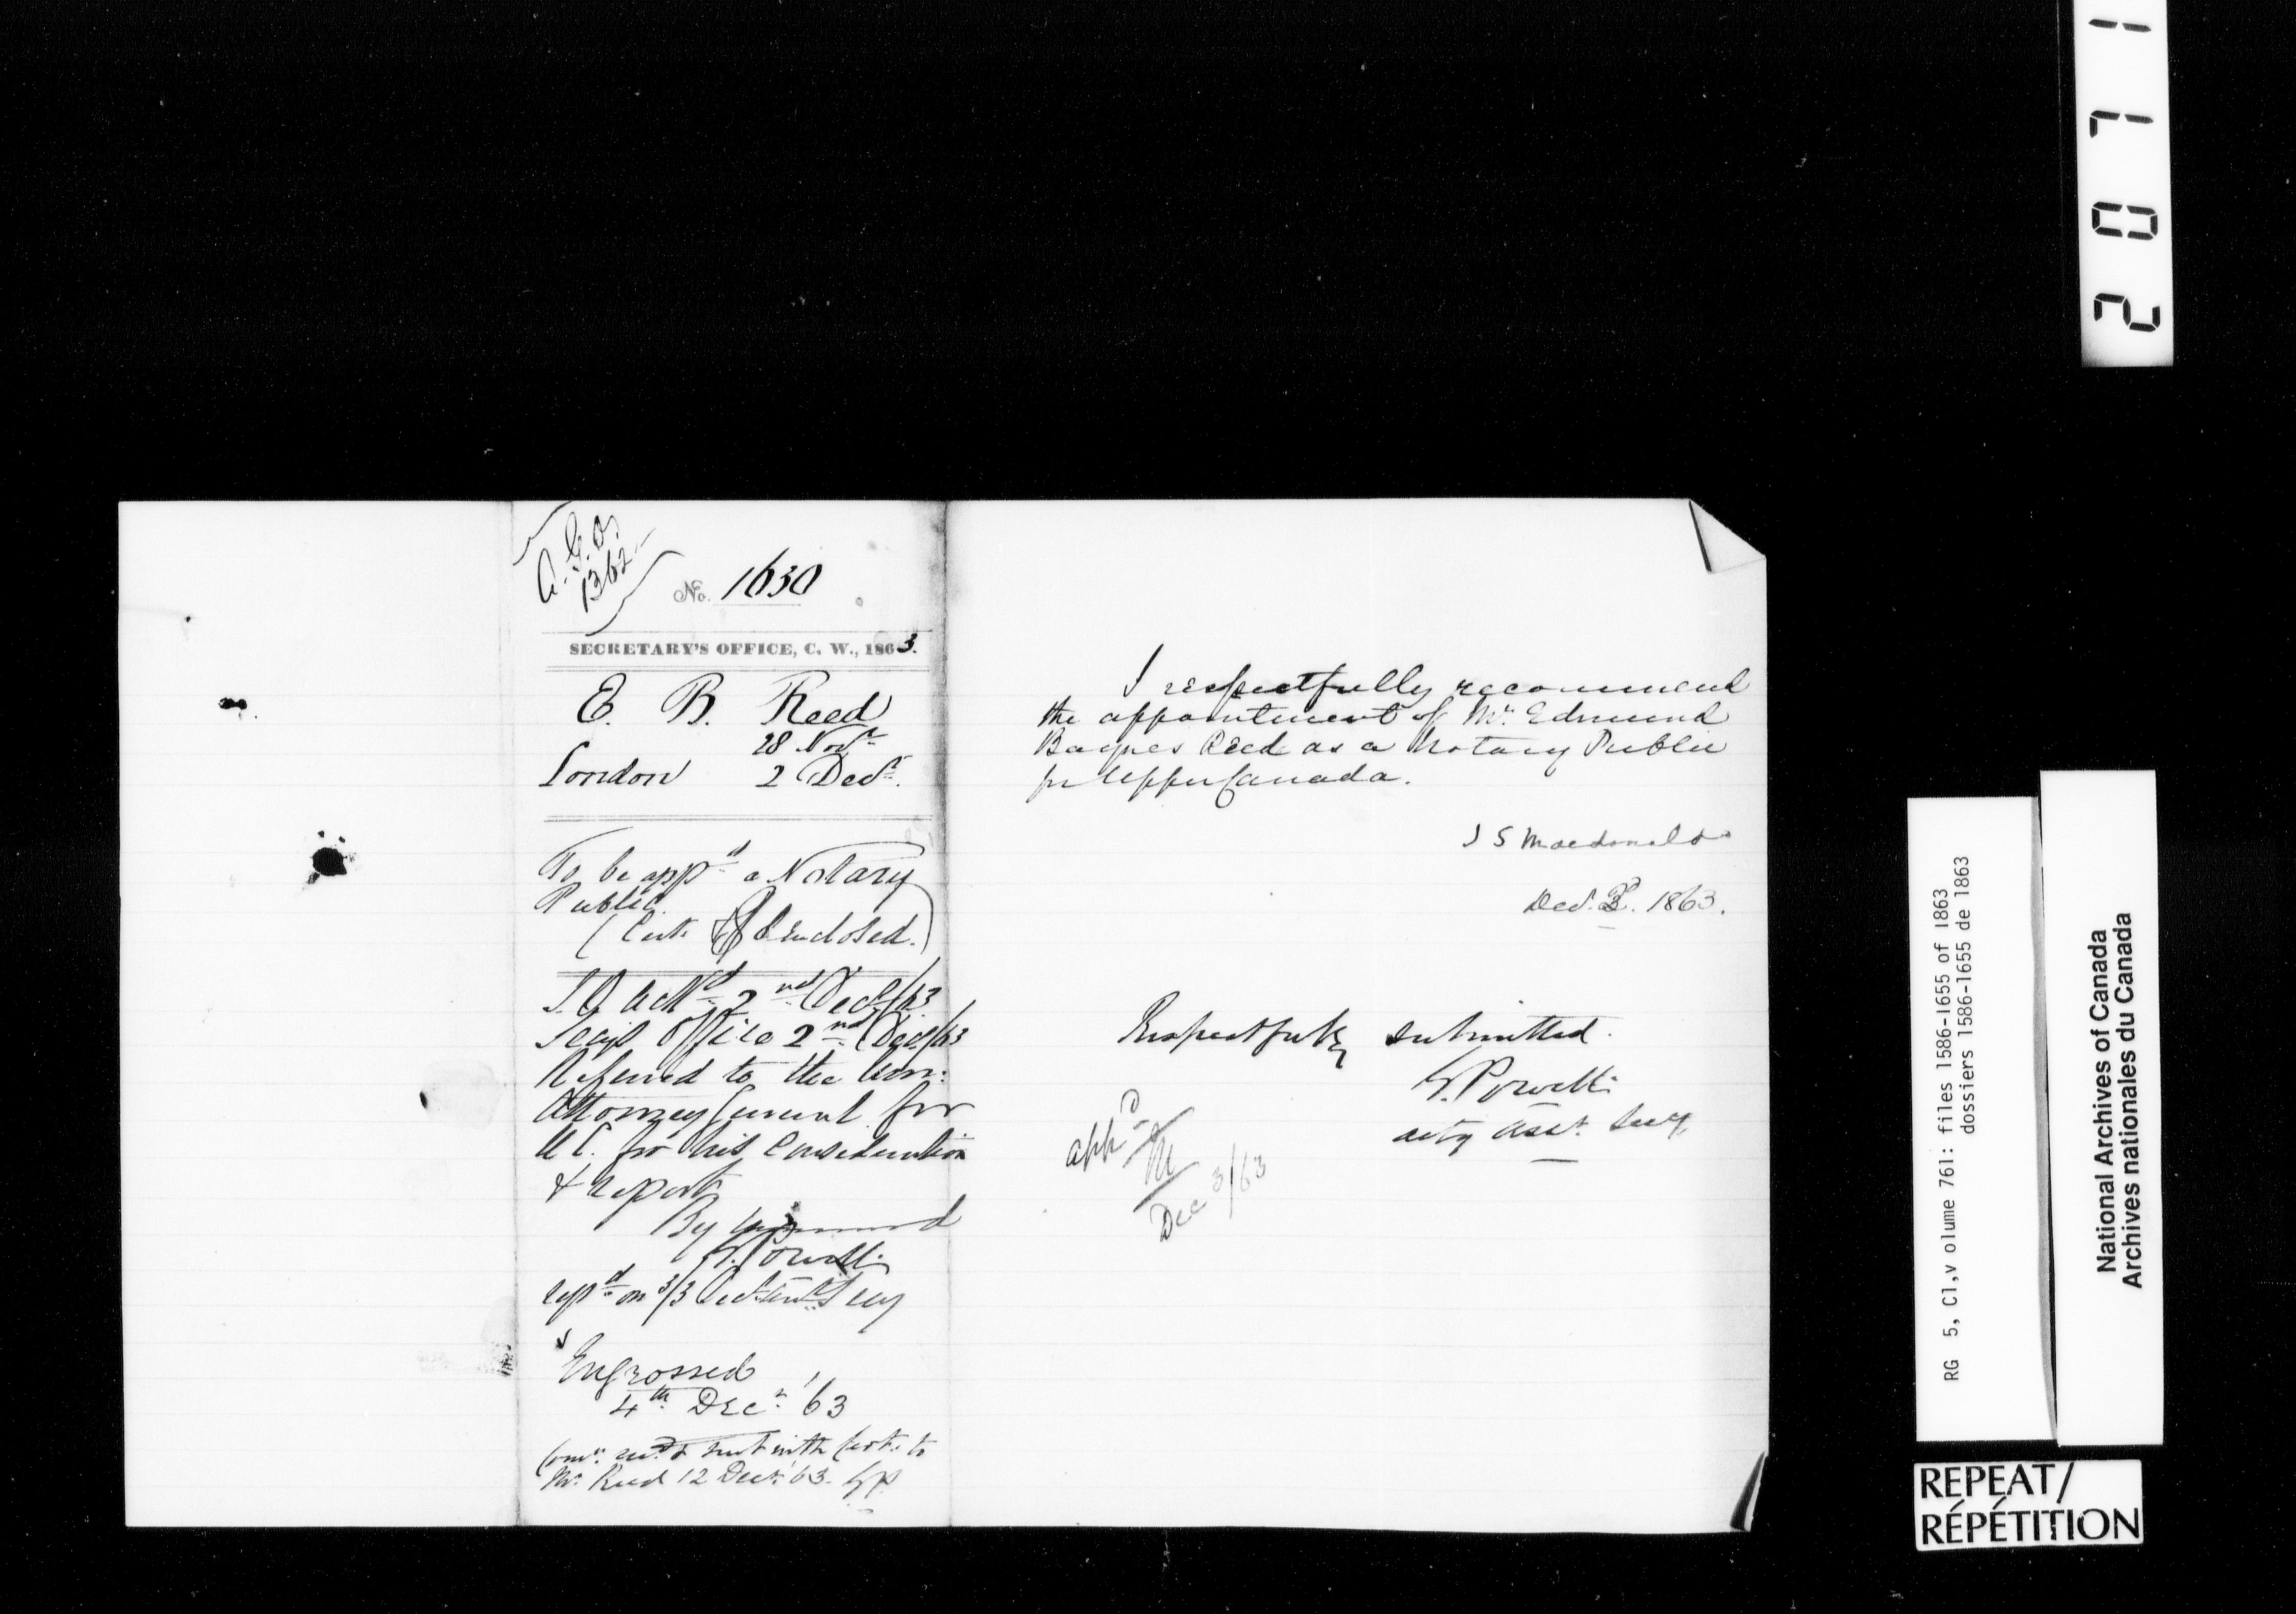 A. G. O.
1362
No. 1630
SECRETARY'S OFFICE, C. W., 1863.
E. B. Reed
28 Novr
London 2 Decr.
To be appd a Notary
Public.
(Cert. enclosed.)
Ackd 2nd Decr/63
Secys Office 2nd Decr/63
Referred to the Hon:
Attorney General for
U C. for his consideration
& report
By Command
G. Powell
Engrossed
4th Decr '63
Comn: recd & sent with Cert. to
Mr Reed 12 Decr '63. GP
I respectfully recommend
the appointment of Mr. Edmund
Baynes Reed as a Notary Public
for Upper Canada.
J S Macdonald
Decr. 1863.
Respectfully submitted.
G. Powell
actg Asst. Secy.
appd
M
Dec 3/63
2071
RG 5, C1,v olume 761: files 1586-1655 of 1863
dossiers 1586-1655 de 1863
National Archives of Canada
Archives nationales du Canada
REPEAT/
RÉPÉTITION